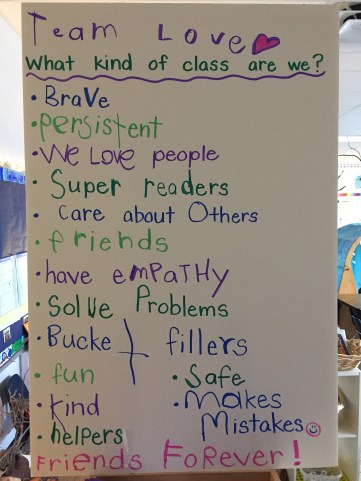 Team Love
What kind of class are we?
• BraVe
• persistent
• We Love people
• Super readers
• care about Others
• friends
• have eMPATHy
• Solve Problems
• Bucket fillers
• fun
• Safe
• kind
• Makes
Mistakes
• helpers
Friends FoRever!